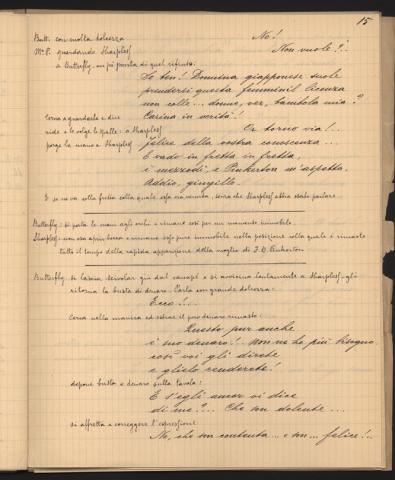 15
Butt. con molta dolcezza No!
Mrs P. guardando Sharpless Non vuole?..
a Butterfly un po' piccata di quel rifiuto:
So ben! Domina giapponese suole
prendersi questa femminil licenza
non colle... donne, ver, bambola mia?
Carina in verità!
torna a guardarla e dice
ride e le volge le spalle: a Sharpless Or torno via!..
porge la mano a Sharpless felice della vostra conoscenza...
E vado in fretta in fretta,
i mezzodì, e Pinkerton m'aspetta.
Addio, gingillo.
E se ne va colla fretta colla quale era venuta, senza che Sharpless abbia osato parlare
Butterfly: si porta le mani agli occhi e rimane così per un momento immobile.
Sharpless: non osa aprir bocca e rimane esso pure immobile nella posizione colla quale è rimasto
tutto il tempo della rapida apparizione della moglie di F. B. Pinkerton
Butterfly: si lascia scivolar giù dal canapè e si avvicina lentamente a Sharpless: gli
ritorna la busta di denaro. Parla con grande dolcezza:
Ecco!..
Cerca nella manica ed estrae il poco denaro rimasto:
Questo pur anche
è suo denaro!! Non ne ho più bisogno
così voi gli direte
e glielo renderete!
depone busta e denaro sulla tavola:
E s'egli amor vi dice
di me?... Che son dolente...
si affretta a correggere l'espressione
No, che son contenta... e son... felice!..